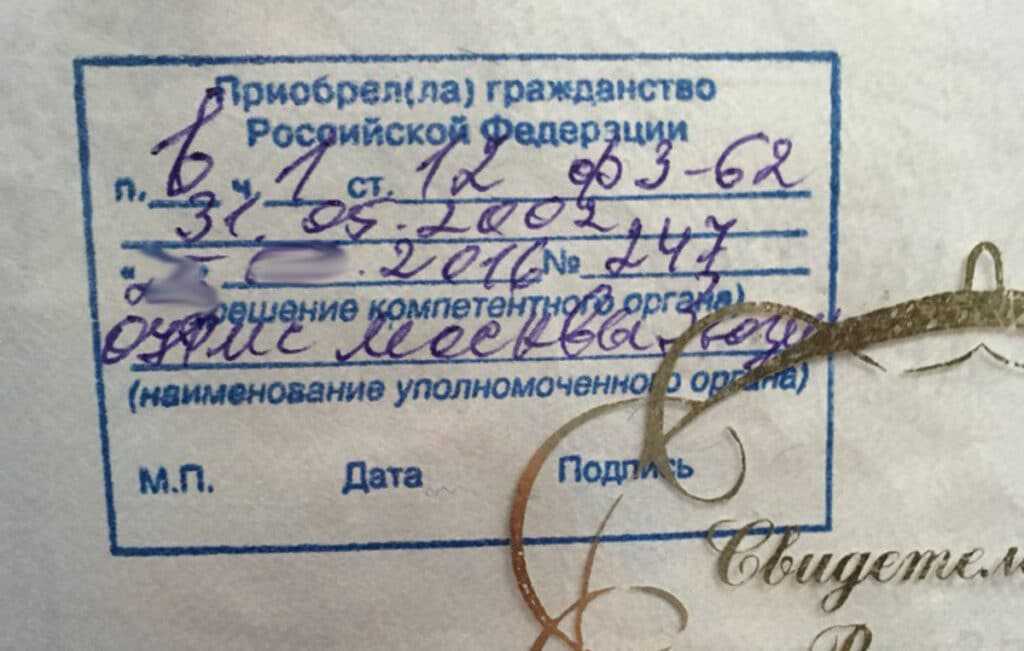 Приобрел(ла) гражданство
Российской Федерации
п. в ч. 1 ст. 12 ФЗ-62
31.05.2002
" .2016 № 247
решение компетентного органа)
Москва
(наименование уполномоченного органа)
М.П. Дата Подпись
Свидетел